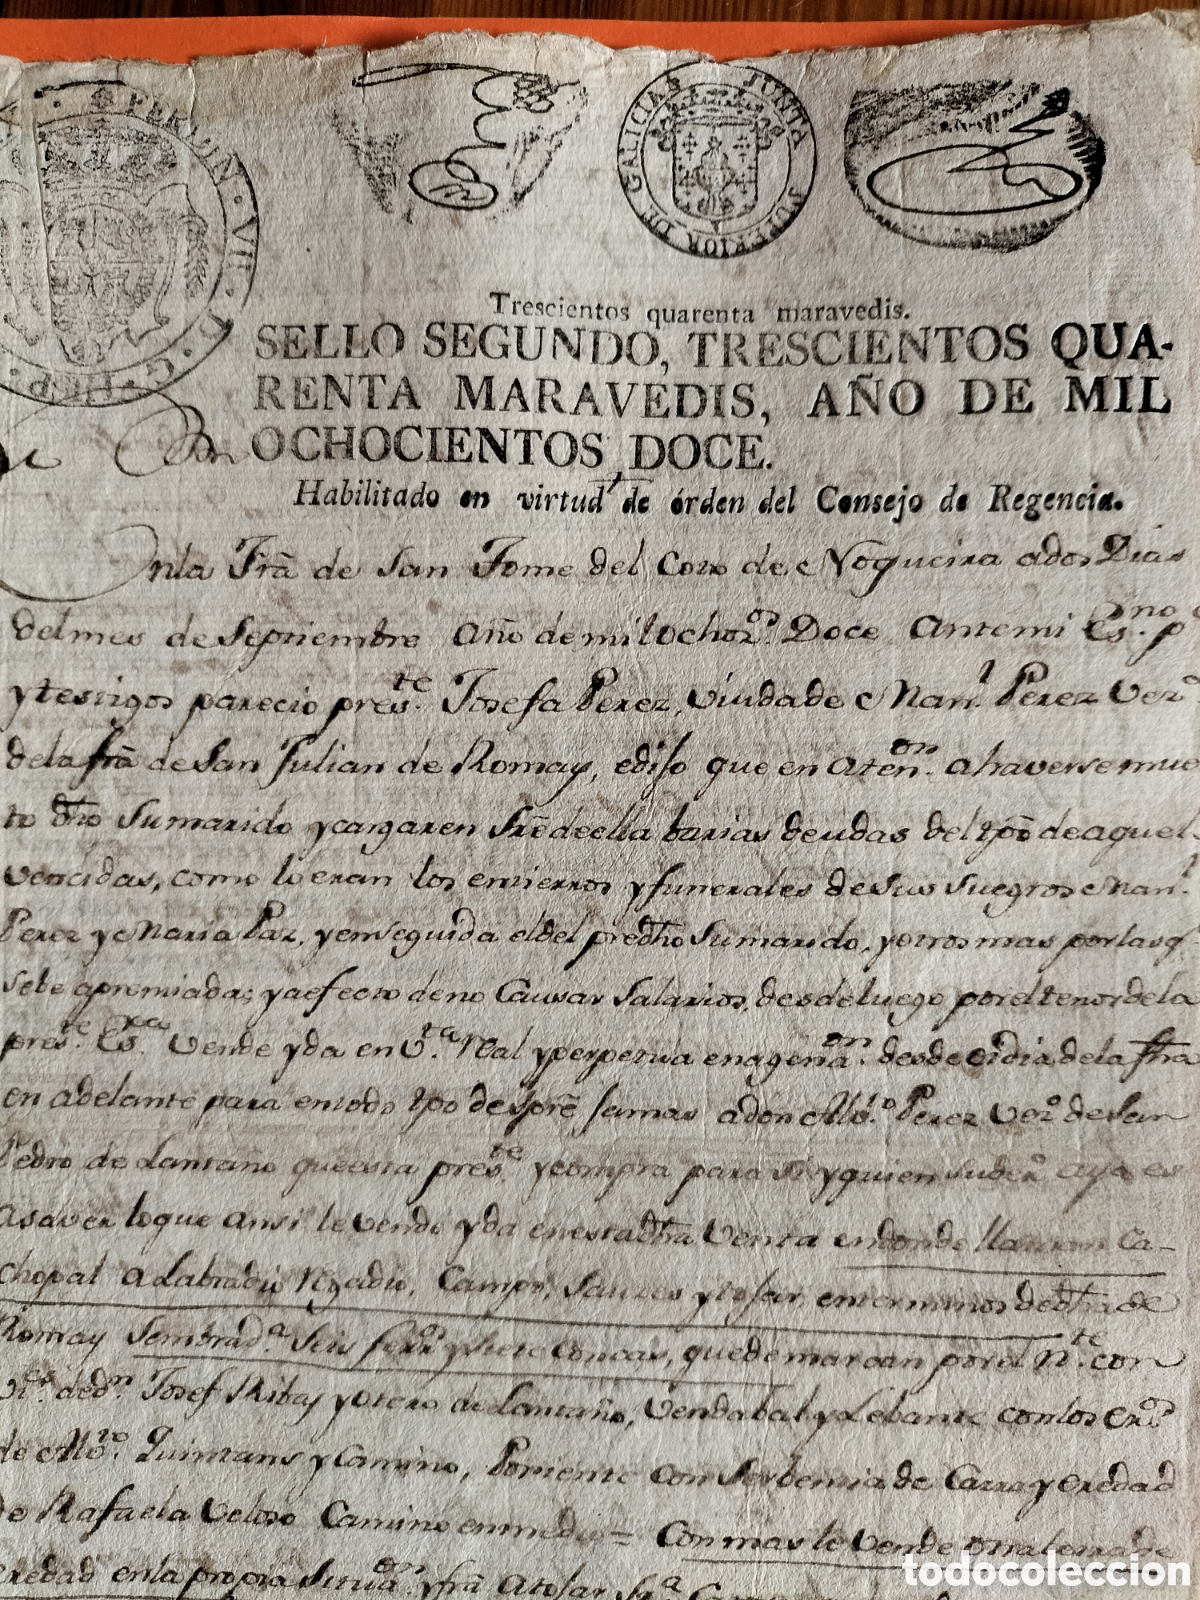 FERDIN · VII · D · G · HISP
JUNTA SUPERIOR DE GALICIA
Trescientos quarenta maravedis.
SELLO SEGUNDO, TRESCIENTOS QUA-
RENTA MARAVEDIS, AÑO DE MIL
OCHOCIENTOS DOCE.
Habilitado en virtud de órden del Consejo de Regencia.
Enla frã de San Tome del Coro de Nogueira ados Dias
delmes de Septiembre año de mil ochoz.os Doce Antemi Es.no p
y testigos parecio pres.te Josefa Perez, Viuda de Man.l Perez Vez.a
dela frã de San Julian de Romay, edijo que en Aten.on ahaverse mue
to dho Sumarido y cargaren sre deella barias deudas del tpo de aquel
vencidas, como lo eran los entierros y funerales de sus suegros Man.l
Perez y Maria Paz, y enseguida el del predho Sumarido, y otros mas por las q.e
sebe apremiada; y aefecto deno Causar Salarios, desdeluego por el tenor dela
pres.te Es.xa Vende y da en V.ta Real y perpetua enagena.on desde eldia dela fha
en adelante para entodo tpo de spre jamas a don Alb.o Perez Vez.o de San
Pedro de Lantaño queesta pres.te y compra para si y quien suder.o aya es
asaver loque ansi le vende y da enesta dha Venta endonde llaman Ca-
chopal a Labradio Regadio, Campo, Sauzes y tojar, enterminos dedha de
Romay Sembrad.a Seis ferr.os y siete Concas, que demarcan por el N.te con
de d.n Josef Ribas y Otero de Lantaño, Vendabal y Lebante con los
de Alb.to Quintans y Camino, Poniente con Serbentia de Carro y eredad
de Rafaela Veloso Camino enmedio = Con mas le Vende otra
eredad enla propia Situa.on y frã A tojar
todocoleccion